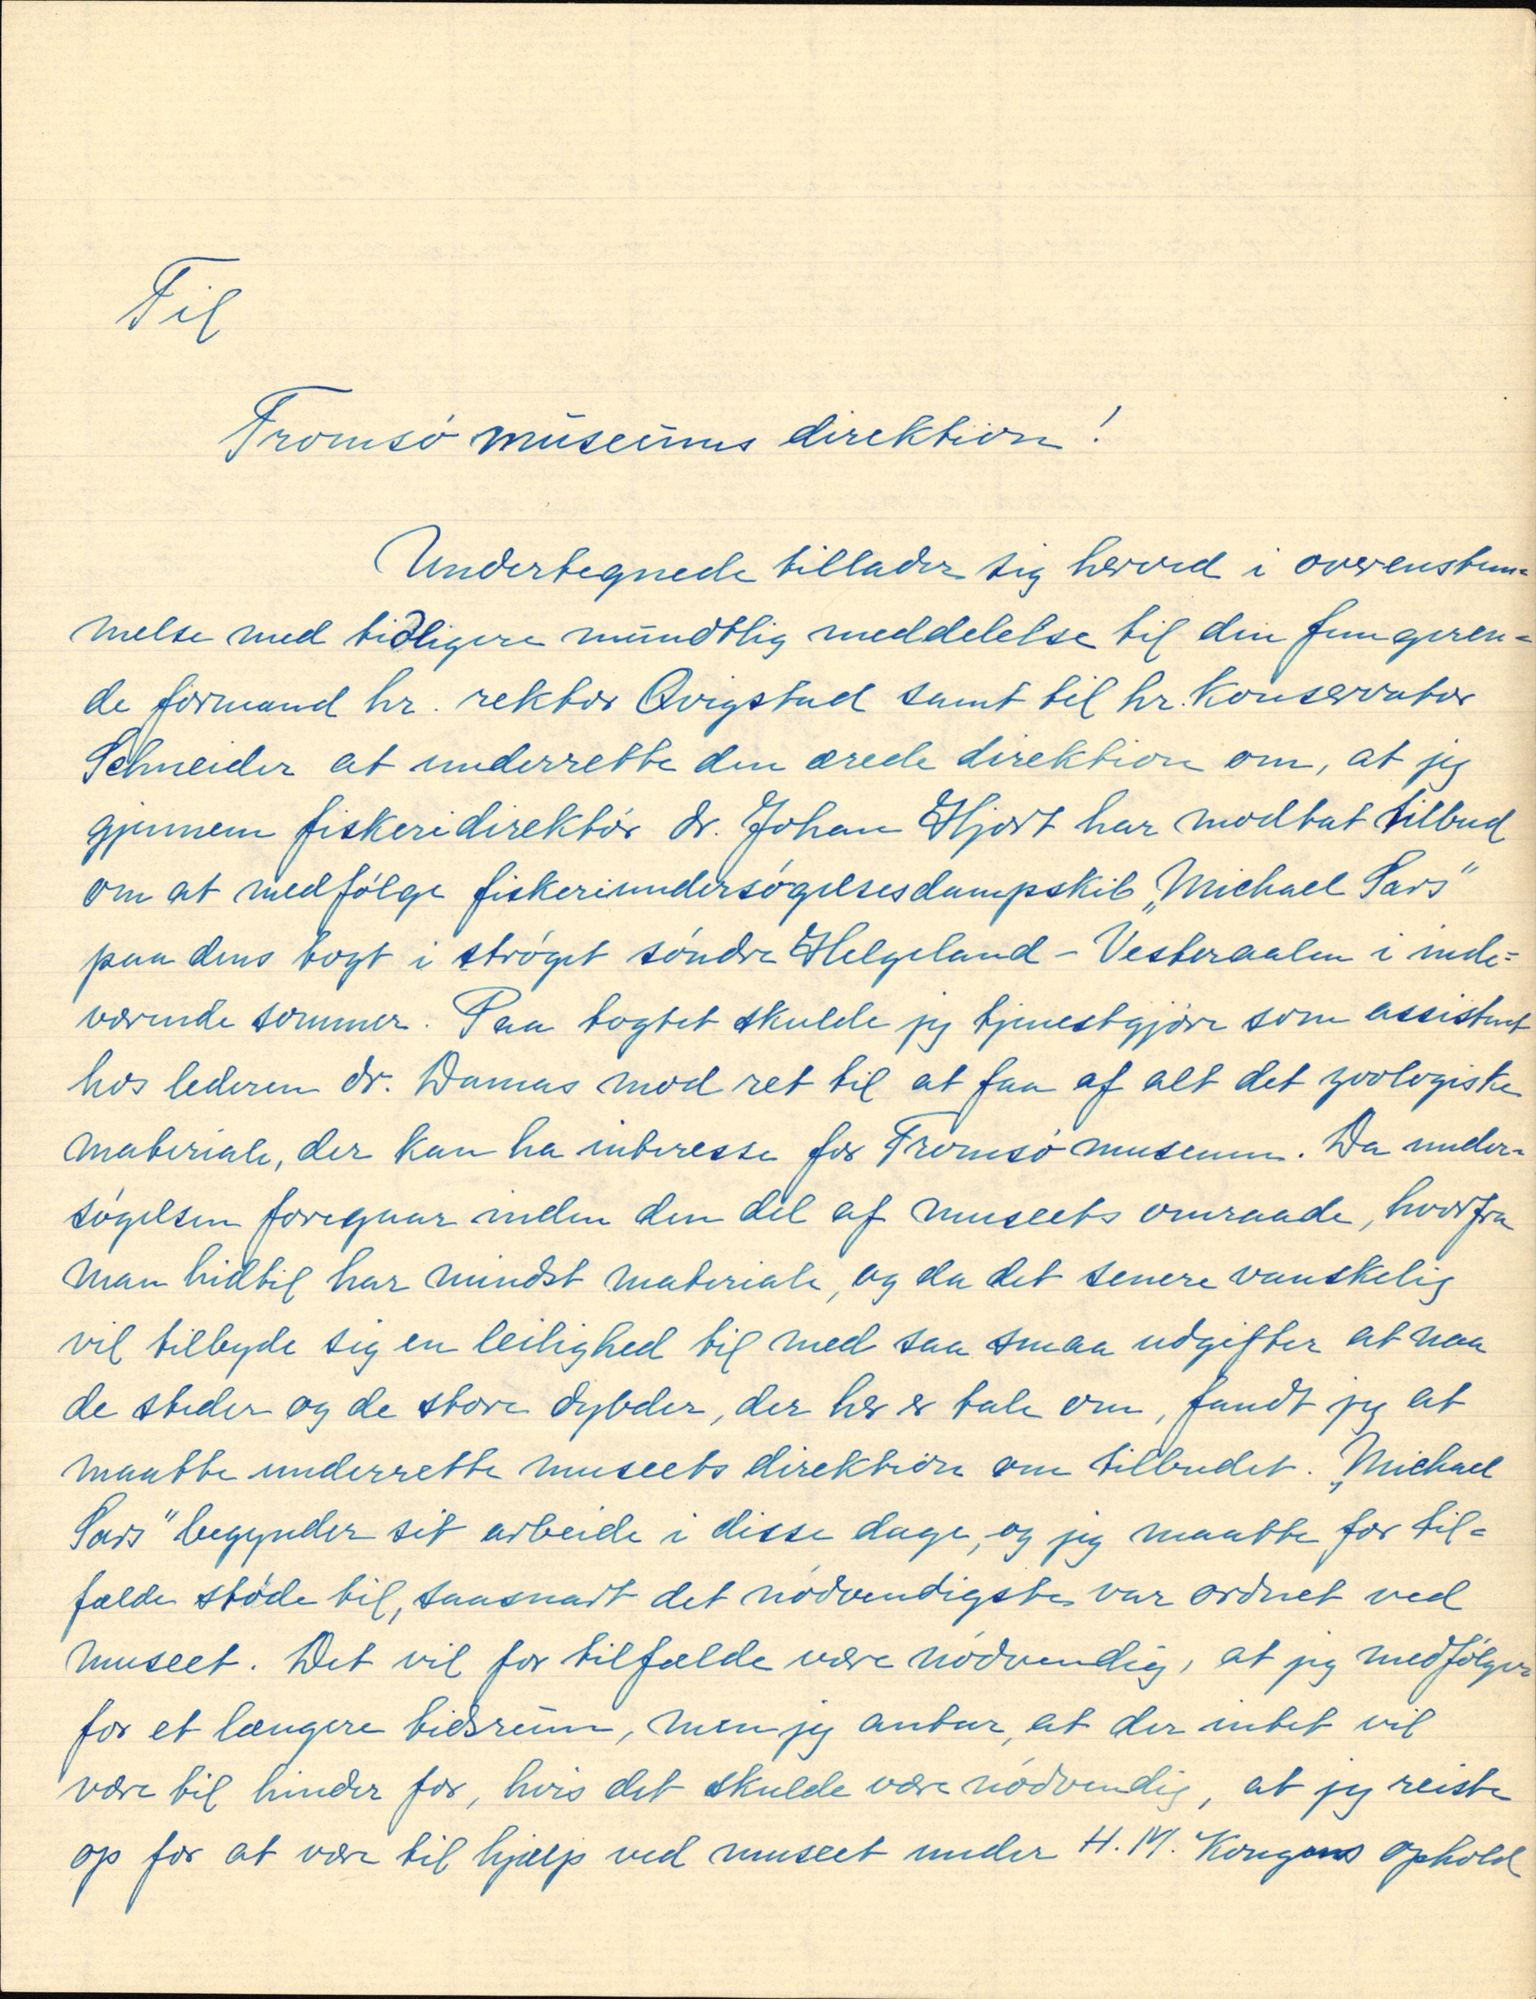 Til
Tromsø museums direktion!
Undertegnede tillader sig herved i overenstem=
melse med tidligere mundtlig meddelelse til din fungeren=
de formand hr. rektor Qvigstad samt til hr. konservator
Schneider at underrette den ærede direktion om, at jeg
gjennem fiskeridirektør dr. Johan Hjort har modtat tilbud
om at medfølge fiskeriundersøgelsesdampskib „Michael Sars"
paa dens togt i strøget søndre Helgeland - Vesteraalen i inde=
værende sommer. Paa togtet skulde jeg tjenestgjøre som assistent
hos lederen dr. Damas mod ret til at faa af alt det zoologiske
materiale, der kan ha interesse for Tromsø museum. Da under=
søgelsen foregaar inden den del af museets omraade, hvorfra
man hidtil har mindst materiale, og da det senere vanskelig
vil tilbyde sig en leilighed til med saa smaa udgifter at naa
de steder og de store dybder, der her er tale om, fandt jeg at
maatte underrette museets direktion om tilbudet. „Michael
Sars" begynder sit arbeide i disse dage, og jeg maatte for til=
fælde støde til, saasnart det nødvendigste var ordnet ved
museet. Det vil for tilfælde være nødvendig, at jeg medfølger
for et længere tidsrum, men jeg antar, at der intet vil
være til hinder for, hvis det skulde være nødvendig, at jeg reiste
op for at være til hjælp ved museet under H. M. Kongens ophold